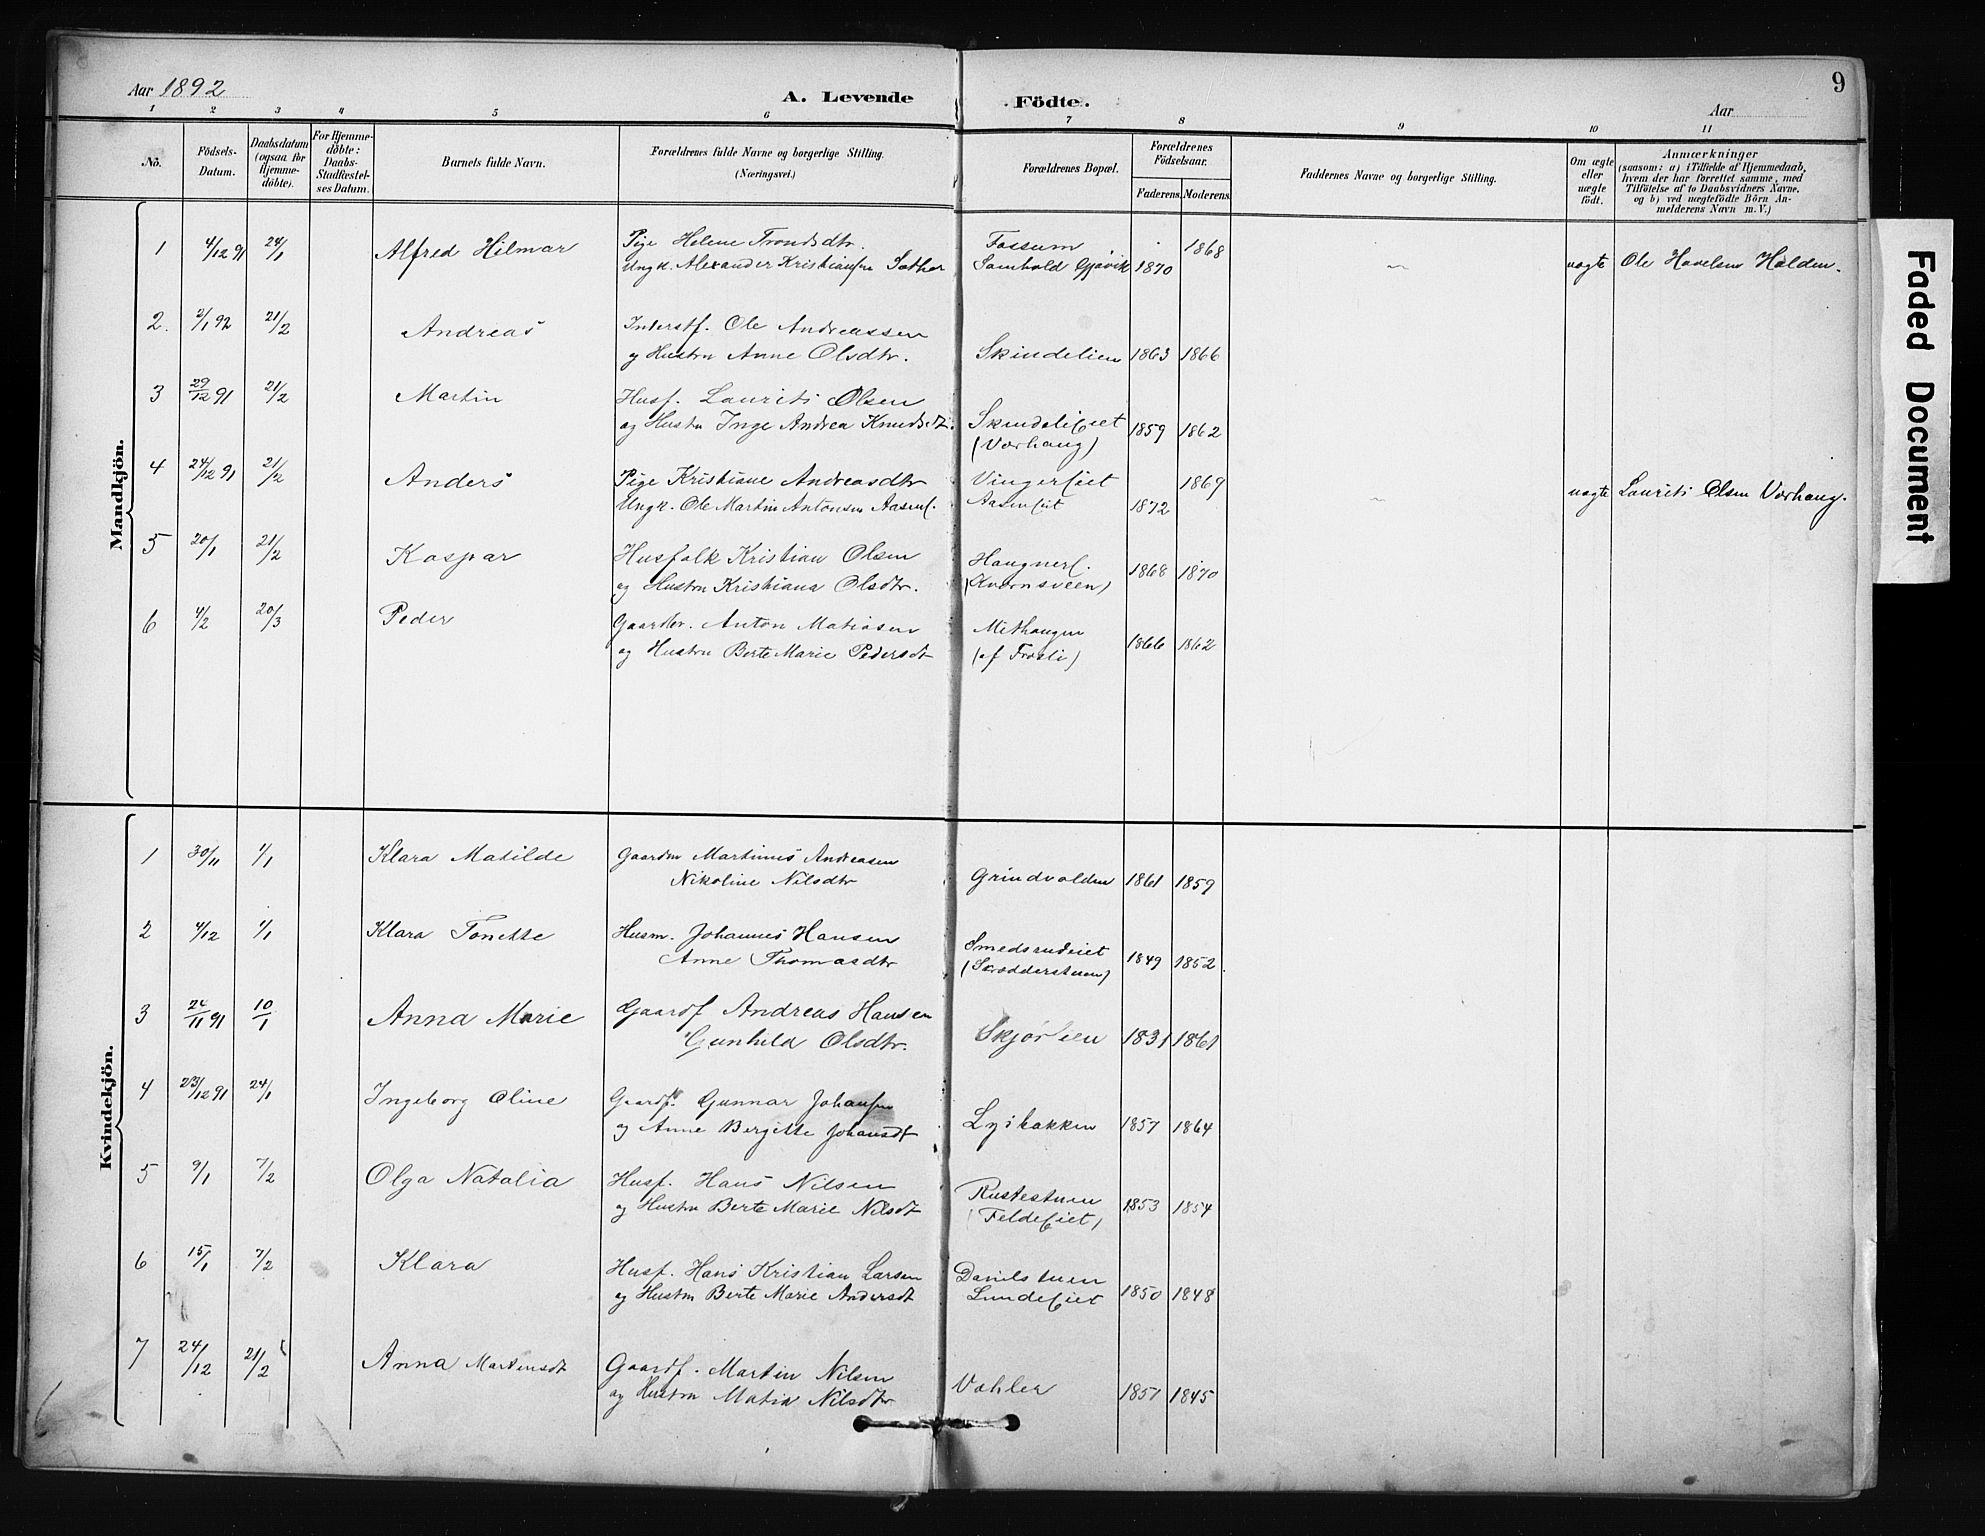 Aar 1892
A. Levende Födte.
Aar
9
1 2 3 4 5 6 7 8 9 10 11
No.
Födsels-
Datum.
Daabsdatum
(ogsaa for
Hjemme-
döbte).
For Hjemme-
döbte:
Daabs-
Stadfæstel-
ses Datum.
Barnets fulde Navn.
Forældrenes fulde Navne og borgerlige Stilling.
(Næringsvei.)
Forældrenes Bopæl.
Forældrenes
Födselsaar.
Faderens. Moderens.
Faddernes Navne og borgerlige Stilling.
Om ægte
eller
uægte
födt.
Anmærkninger
(saasom: a) i Tilfælde af Hjemmedaab,
hvem der har forrettet samme, med
Tilföielse af to Daabsvidners Navne.
og b) ved uægtefödte Börn An-
melderens Navn m. V.)
Mandkjön.
1 4/12 91 24/1 Alfred Hilmar Pige Helene Trondsdtr. Fossum 1868
Ungk. Alexander Kristiansen Sæther Samhold Gjøvik 1870 uægte Ole Havelsen Halden.
2. 2/1 92 21/2 Andreas Inderstf. Ole Andreassen
og Hustru Anne Olsdtr. Skindelien 1863 1866
3 29/12 91 21/2 Martin Husf. Laurits Olsen
og Hustru Inge Andrea Knudsdt. Skindelieiet 1859 1862
(Værhaug)
4 24/12 91 21/2 Anders Pige Kristiane Andreasdtr Vingereiet 1869
Ungk. Ole Martin Antonsen Aasenf. Aaseneiet 1872 uægte Laurits Olsen Værhaug.
5 20/1 21/2 Kaspar Husfolk Kristian Olsen Haugnerf. 1868 1870
og Hustru Kristiana Olsdtr. (Kvernsveen)
6 4/2 20/3 Peder Gaardbr. Anton Matiasen Methaugen
og Hustru Berte Marie Pedersdt (af Frøsli) 1866 1862
Kvindekjön.
1 30/11 1/1 Klara Matilde Gaardm Martinus Andreasen
Nikoline Nilsdtr Grindvolden 1861 1859
2 4/12 1/1 Klara Tonette Husm. Johannes Hansen Smedsrudeiet
Anne Thomasdtr (Skrædderstuen) 1849 1852
3 24/11 91 10/1 Anna Marie Gaardf Andreas Hansen
Gunhild Olsdtr. Skjørlien 1831 1861
4 23/12 91 24/1 Ingeborg Oline Gaardf. Gunnar Johansen
og Anne Bergitte Johansdt Lysbakken 1857 1864
5 9/1 7/2 Olga Natalia Husf. Hans Nilsen Rustestuen
og Hustru Berte Marie Nilsdt (Feldeeiet) 1853 1854
6 15/1 7/2 Klara Husf. Hans Kristian Larsen Danielstuen
og Hustru Berte Marie Andersdt Lundeeiet 1850 1848
7 24/12 21/2 Anna Martinsdt Gaardf. Martin Nilsen
og Hustru Matia Nilsdtr Vohler 1851 1845
Faded Document